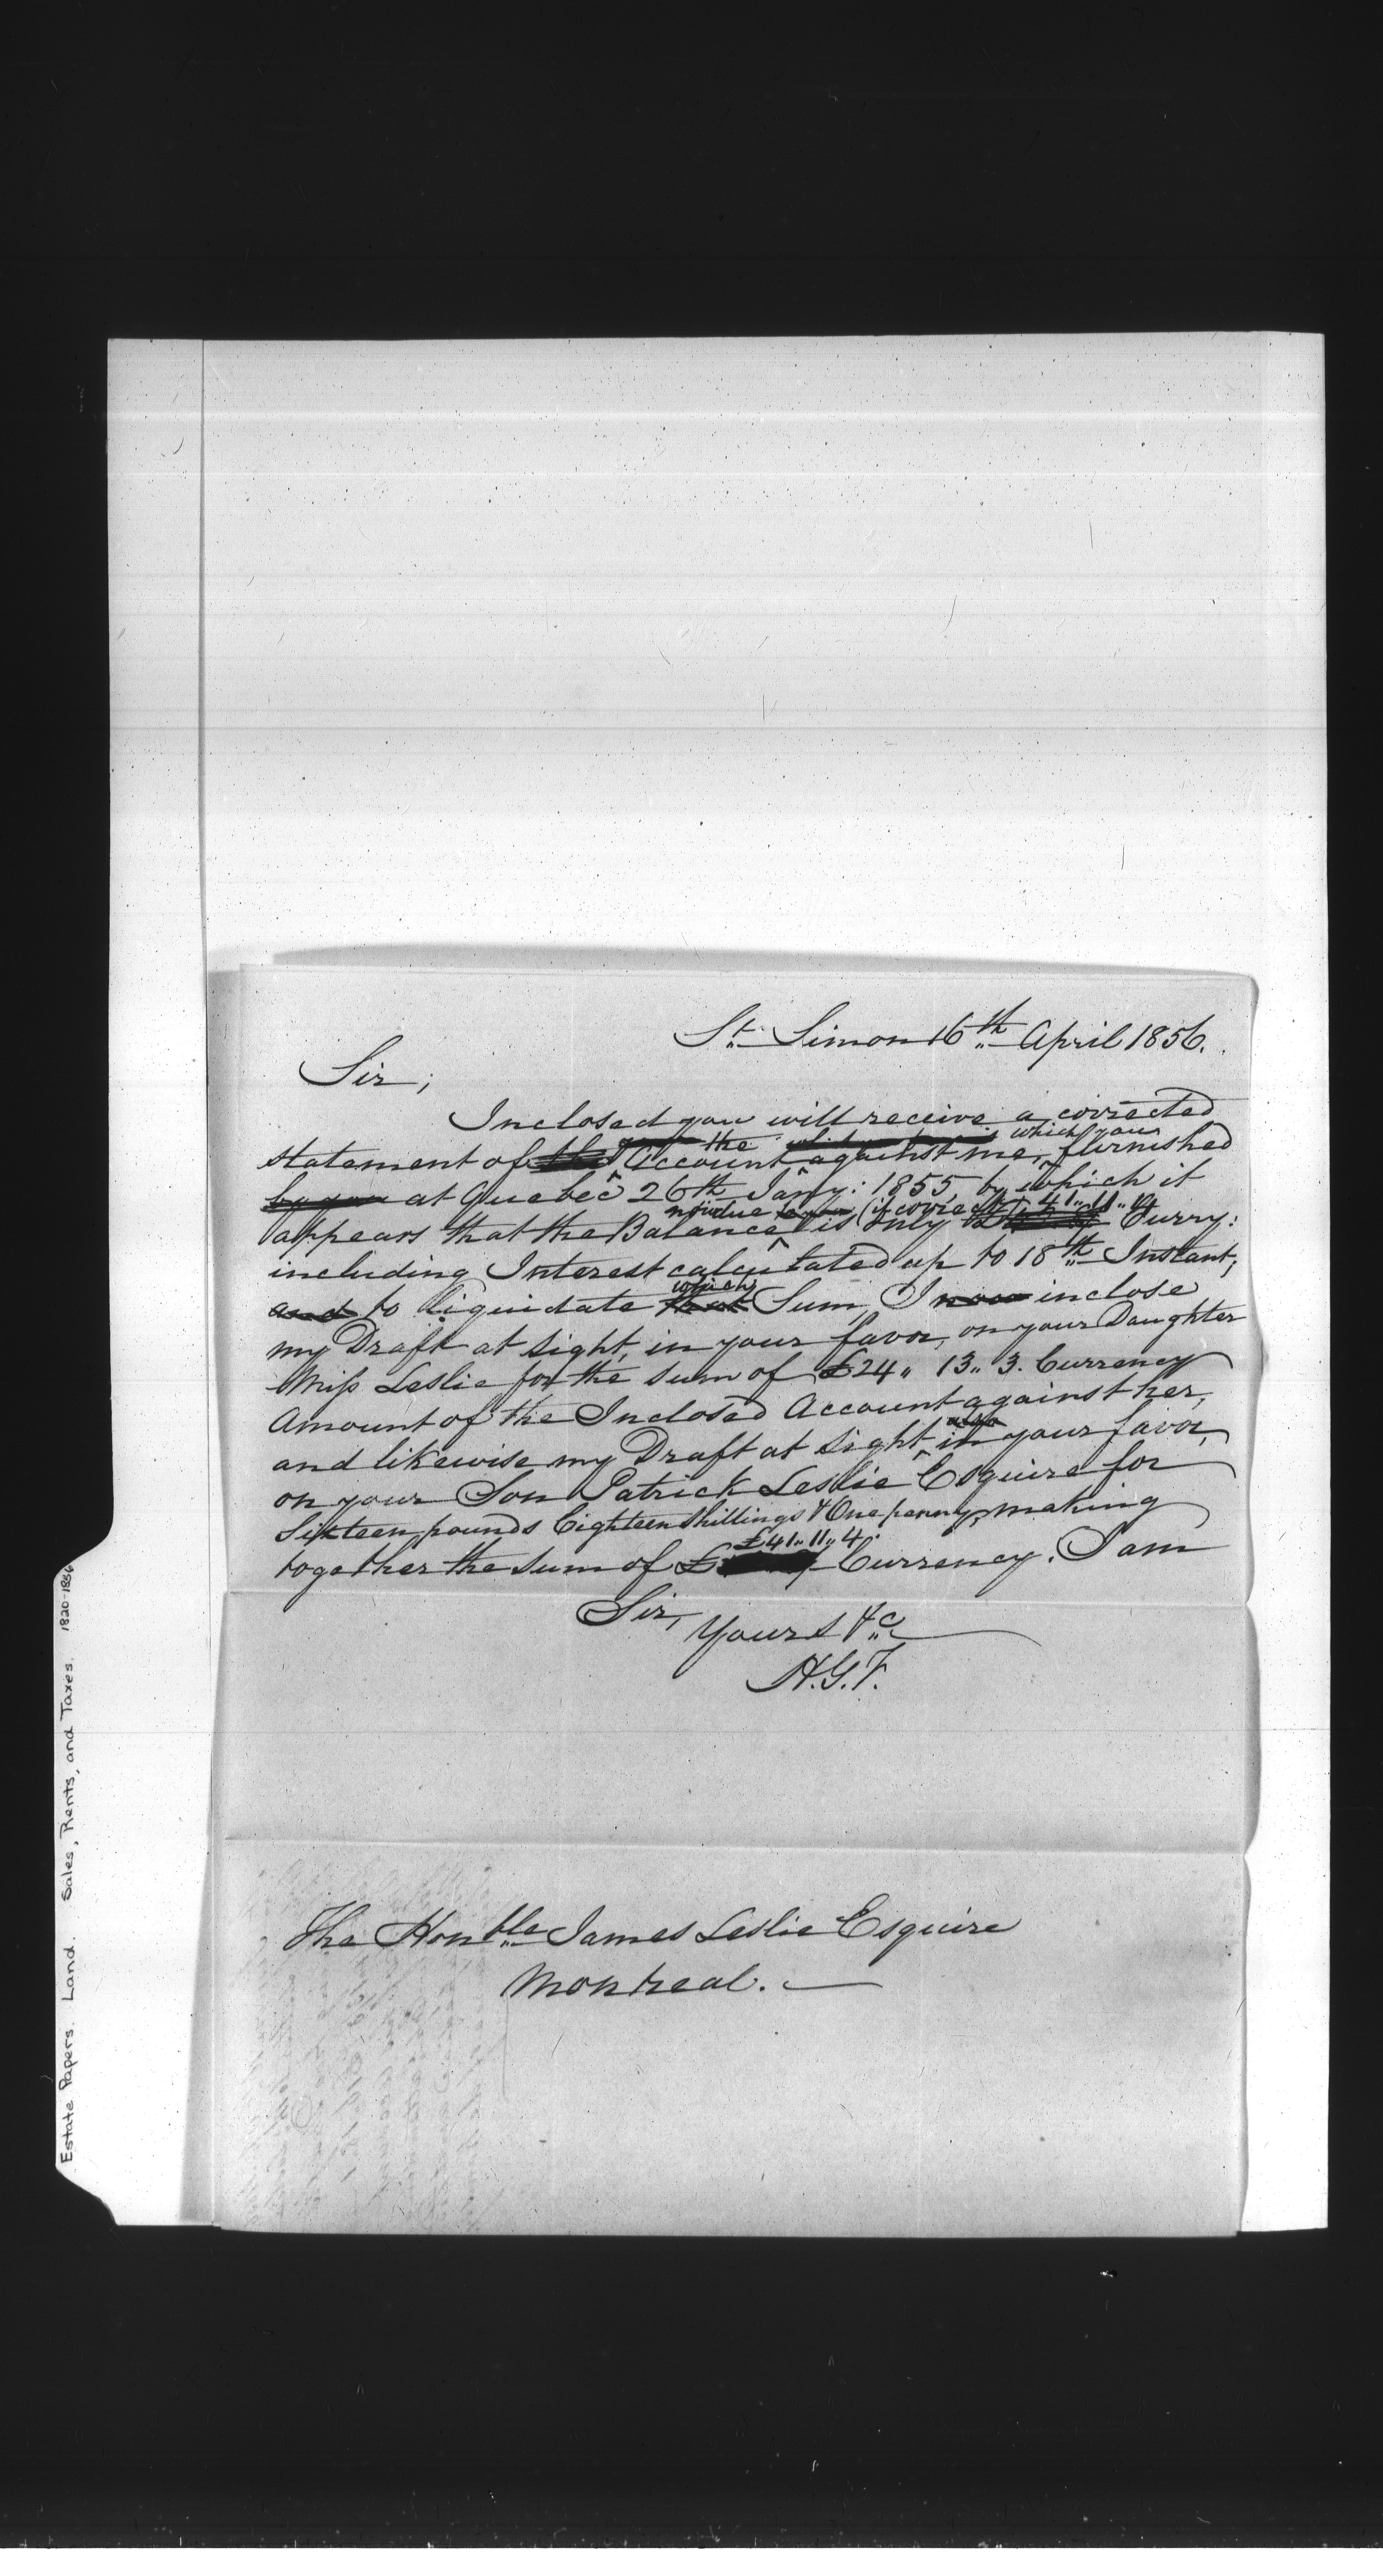 St. Simon 16th April 1856.
Sir;
Inclosed you will receive a corrected
statement of the Account against me, which you furnished
by you at Quebec 26th Jany: 1855, by which it
appears that the Balance now due (if correct) is only £41,, 11,, 4 Curry:
including Interest calculated up to 18th Instant;
and to liquidate that which Sum, I now inclose
my Draft at sight, in your favor, on your Daughter
Miss Leslie for the sum of £24,, 13,, 3. Currency
Amount of the Inclosed Account against her,
and likewise my Draft at sight also in your favor,
on your Son Patrick Leslie Esquire for
Sixteen pounds Eighteen Shillings & One penny, making
together the sum of £41,, 11,, 4. Currency. I am
Sir,
Yours &c
H.G.F.
The Honble James Leslie Esquire
Montreal.
Estate Papers. Land. Sales, Rents, and Taxes. 1820-1856